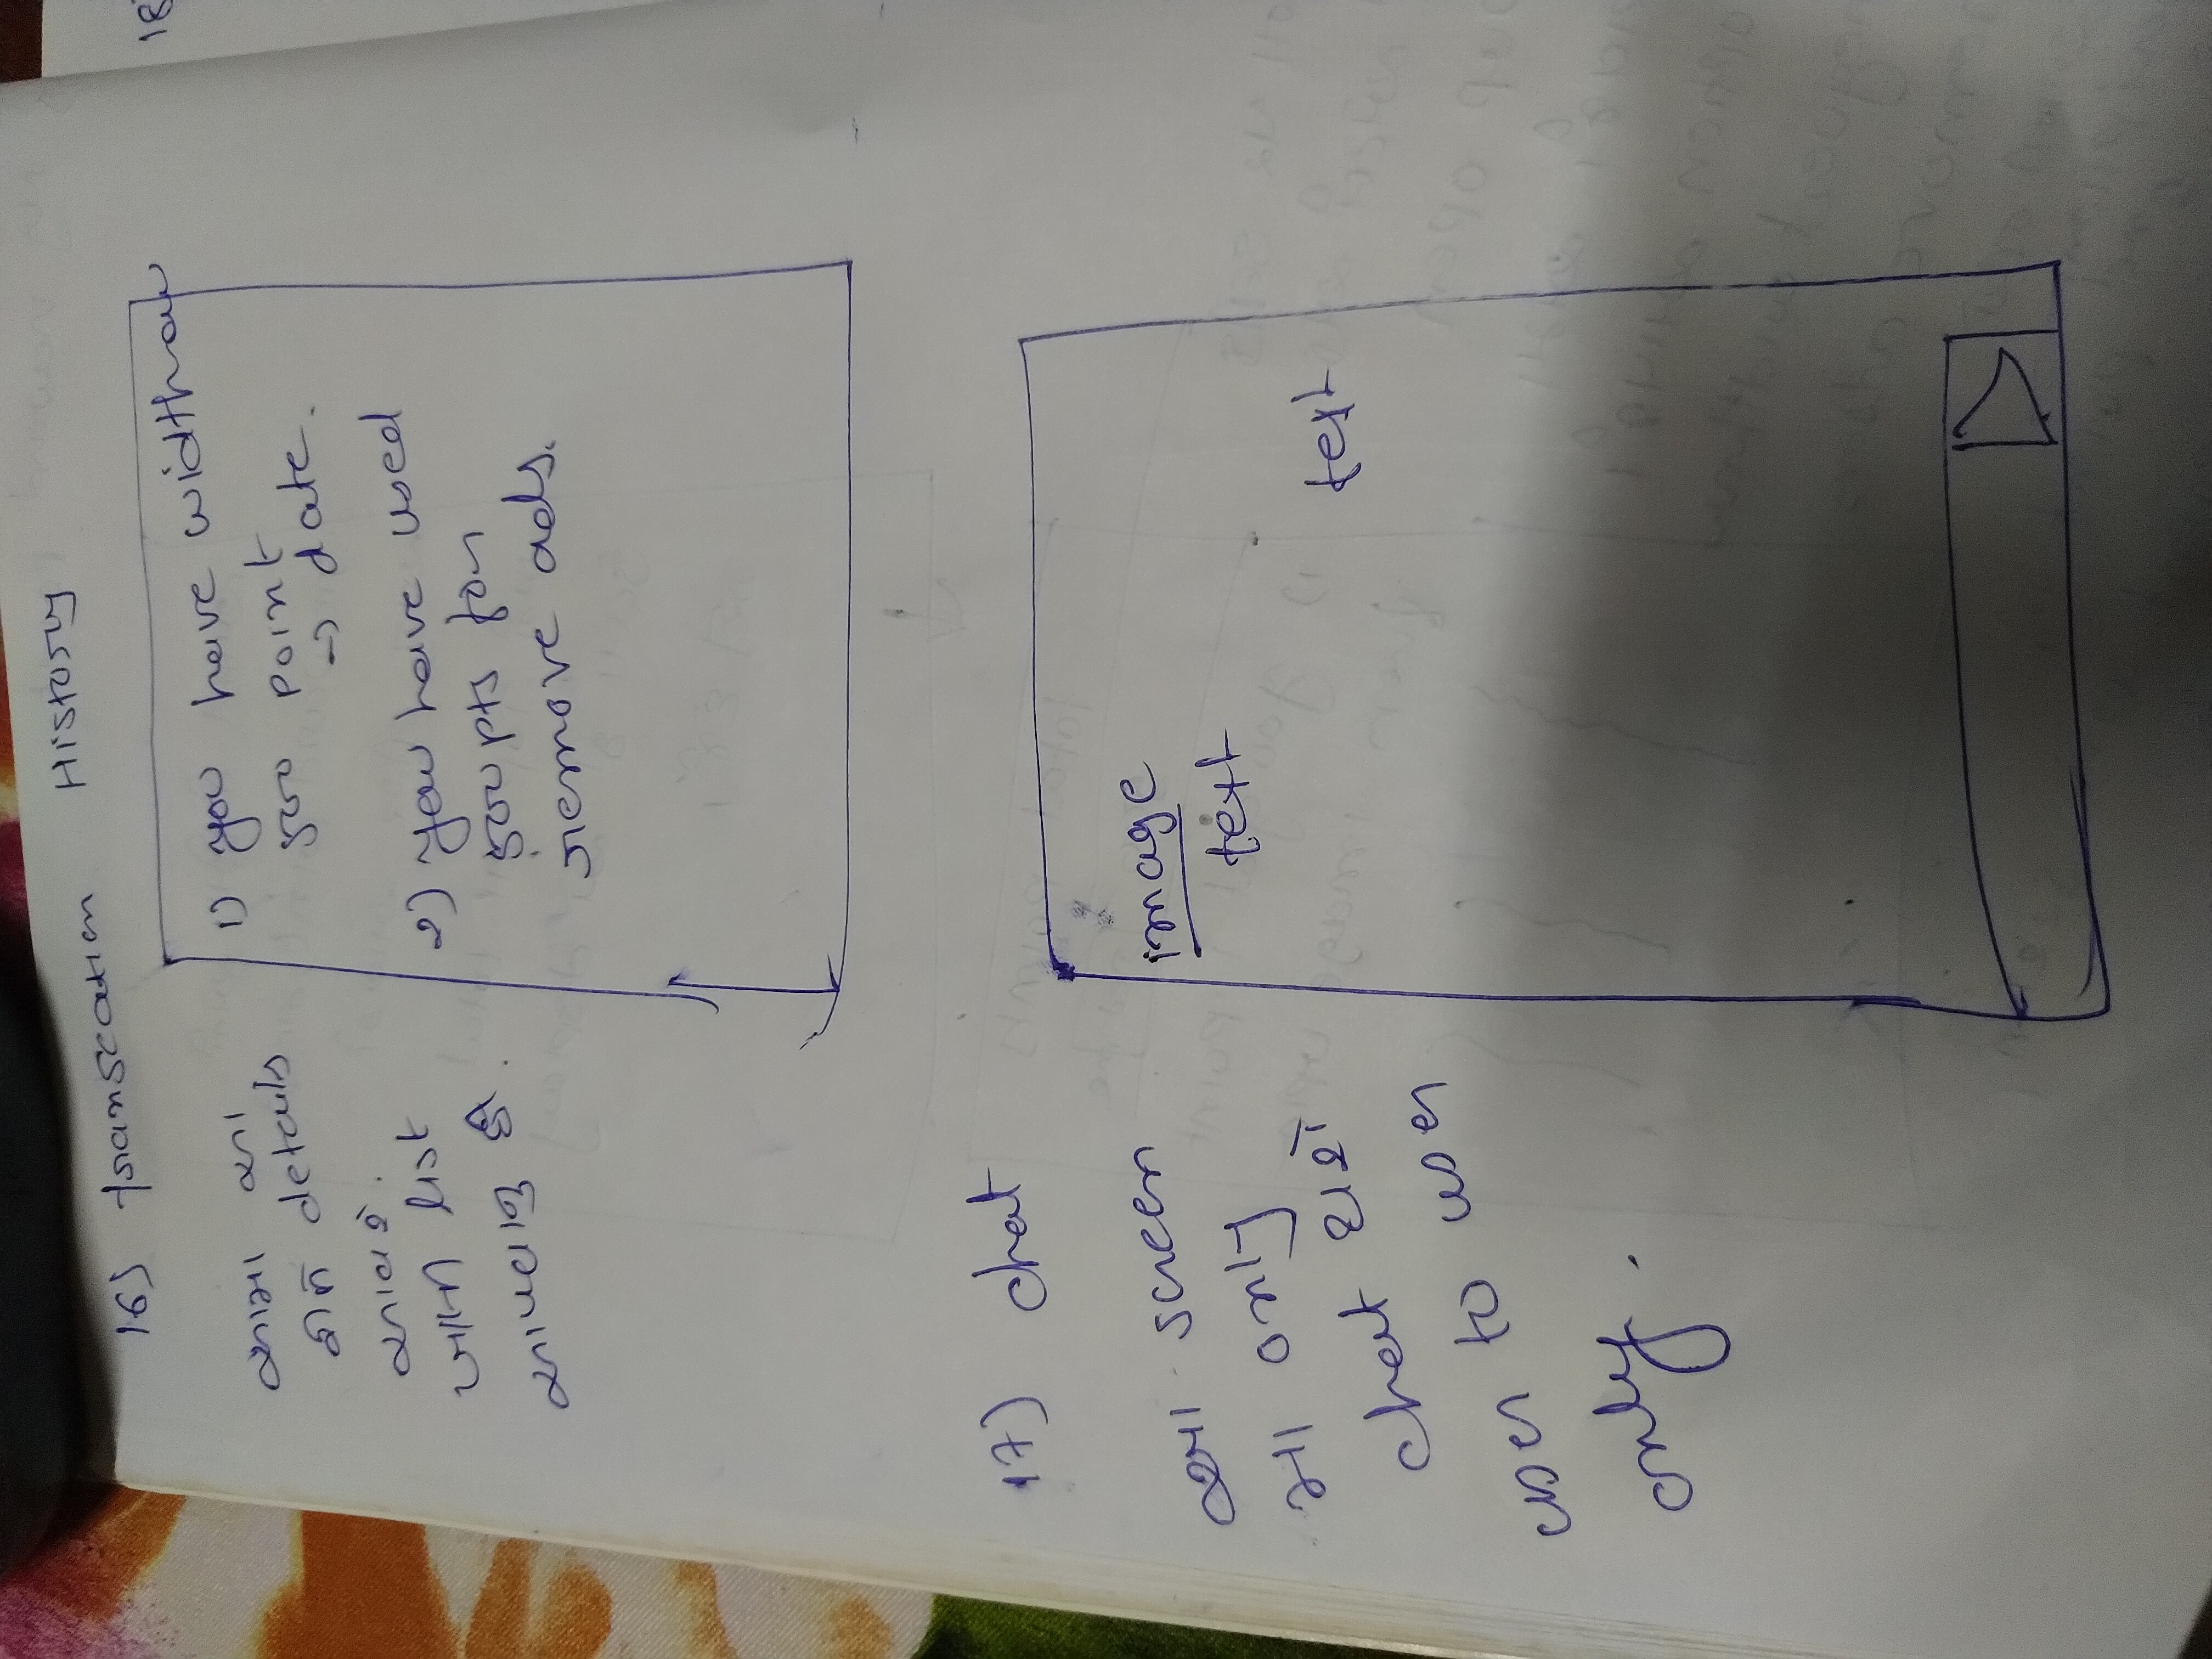 16) transcation History
આમા આ
રીતે details
આવશે.
ખાલી list
આપવાનુ છે.
1) you have widthraw
500 point
→ date.
2) you have used
500 pts for
remove ads.
18
17) chat
આ screen
મા only
chat થશે
user to user
only.
image
text
text